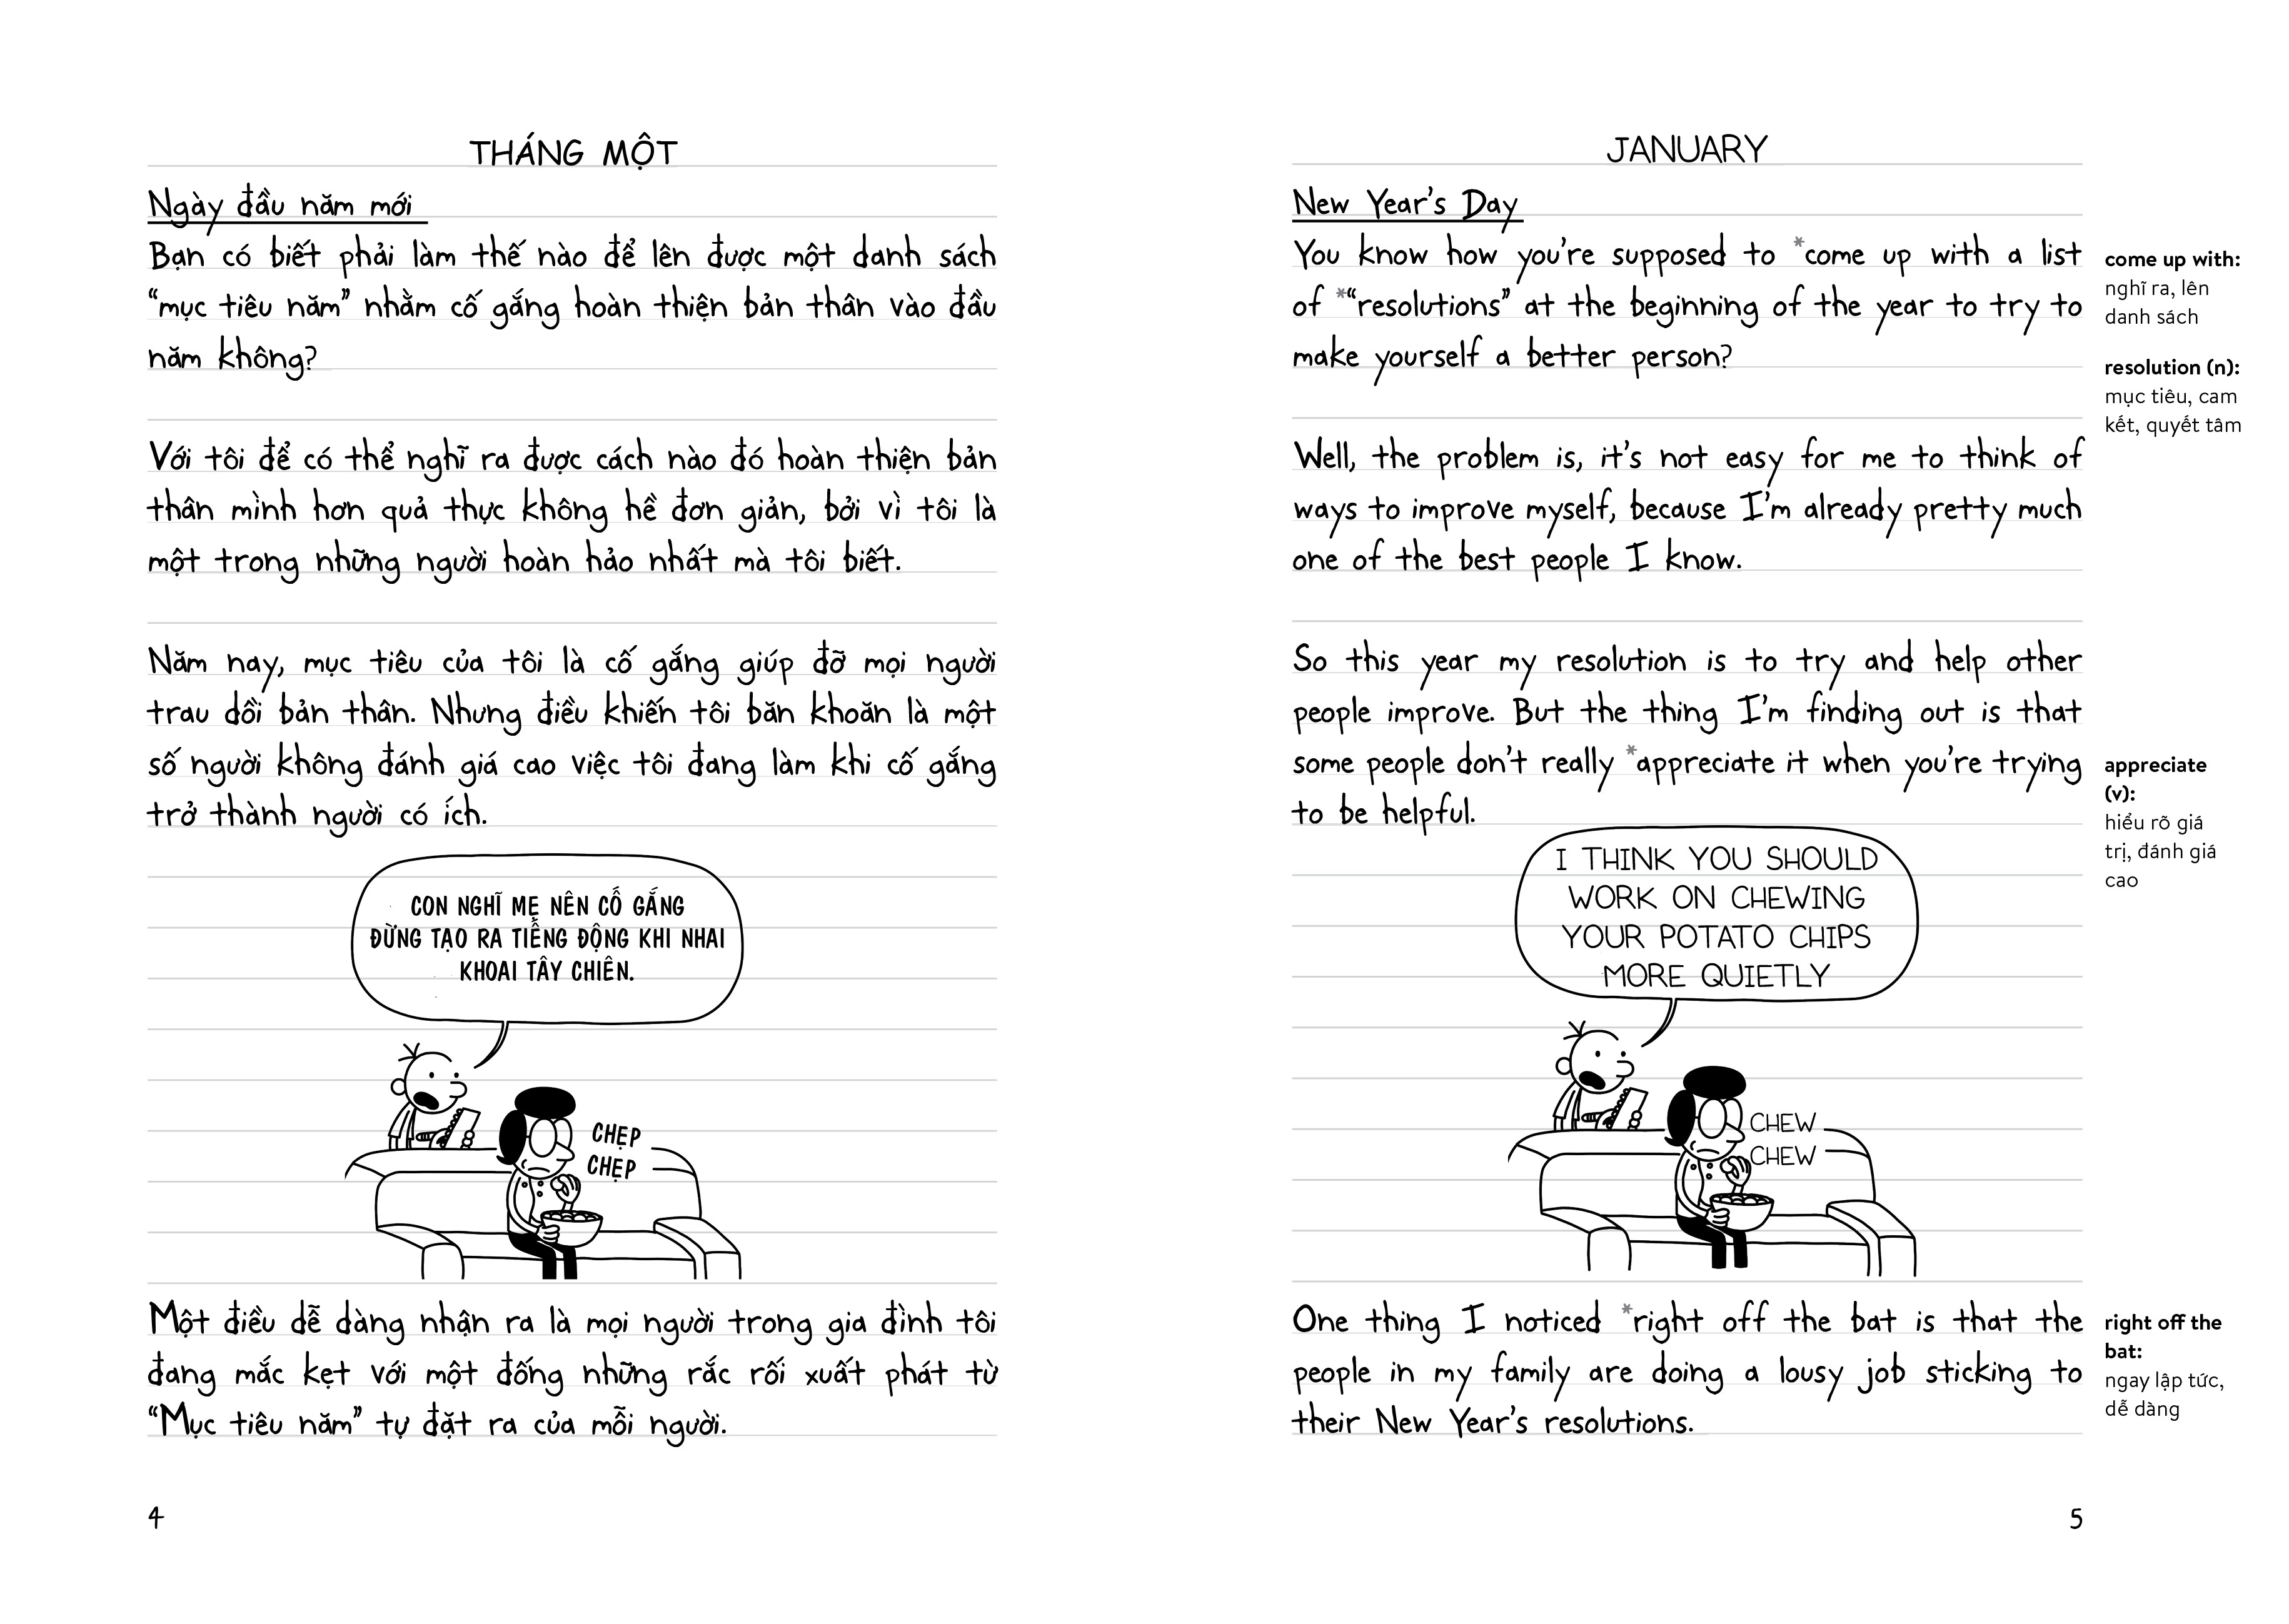 THÁNG MỘT
Ngày đầu năm mới
Bạn có biết phải làm thế nào để lên được một danh sách
“mục tiêu năm” nhằm cố gắng hoàn thiện bản thân vào đầu
năm không?
Với tôi để có thể nghĩ ra được cách nào đó hoàn thiện bản
thân mình hơn quả thực không hề đơn giản, bởi vì tôi là
một trong những người hoàn hảo nhất mà tôi biết.
Năm nay, mục tiêu của tôi là cố gắng giúp đỡ mọi người
trau dồi bản thân. Nhưng điều khiến tôi băn khoăn là một
số người không đánh giá cao việc tôi đang làm khi cố gắng
trở thành người có ích.
CON NGHĨ MẸ NÊN CỐ GẮNG
ĐỪNG TẠO RA TIẾNG ĐỘNG KHI NHAI
KHOAI TÂY CHIÊN.
CHẸP
CHẸP
Một điều dễ dàng nhận ra là mọi người trong gia đình tôi
đang mắc kẹt với một đống những rắc rối xuất phát từ
“Mục tiêu năm” tự đặt ra của mỗi người.
4
JANUARY
New Year’s Day
You know how you’re supposed to *come up with a list
of *“resolutions” at the beginning of the year to try to
make yourself a better person?
come up with:
nghĩ ra, lên
danh sách
resolution (n):
mục tiêu, cam
kết, quyết tâm
Well, the problem is, it’s not easy for me to think of
ways to improve myself, because I’m already pretty much
one of the best people I know.
So this year my resolution is to try and help other
people improve. But the thing I’m finding out is that
some people don’t really *appreciate it when you’re trying
to be helpful.
appreciate
(v):
hiểu rõ giá
trị, đánh giá
cao
I THINK YOU SHOULD
WORK ON CHEWING
YOUR POTATO CHIPS
MORE QUIETLY
CHEW
CHEW
One thing I noticed *right off the bat is that the
people in my family are doing a lousy job sticking to
their New Year’s resolutions.
right off the
bat:
ngay lập tức,
dễ dàng
5